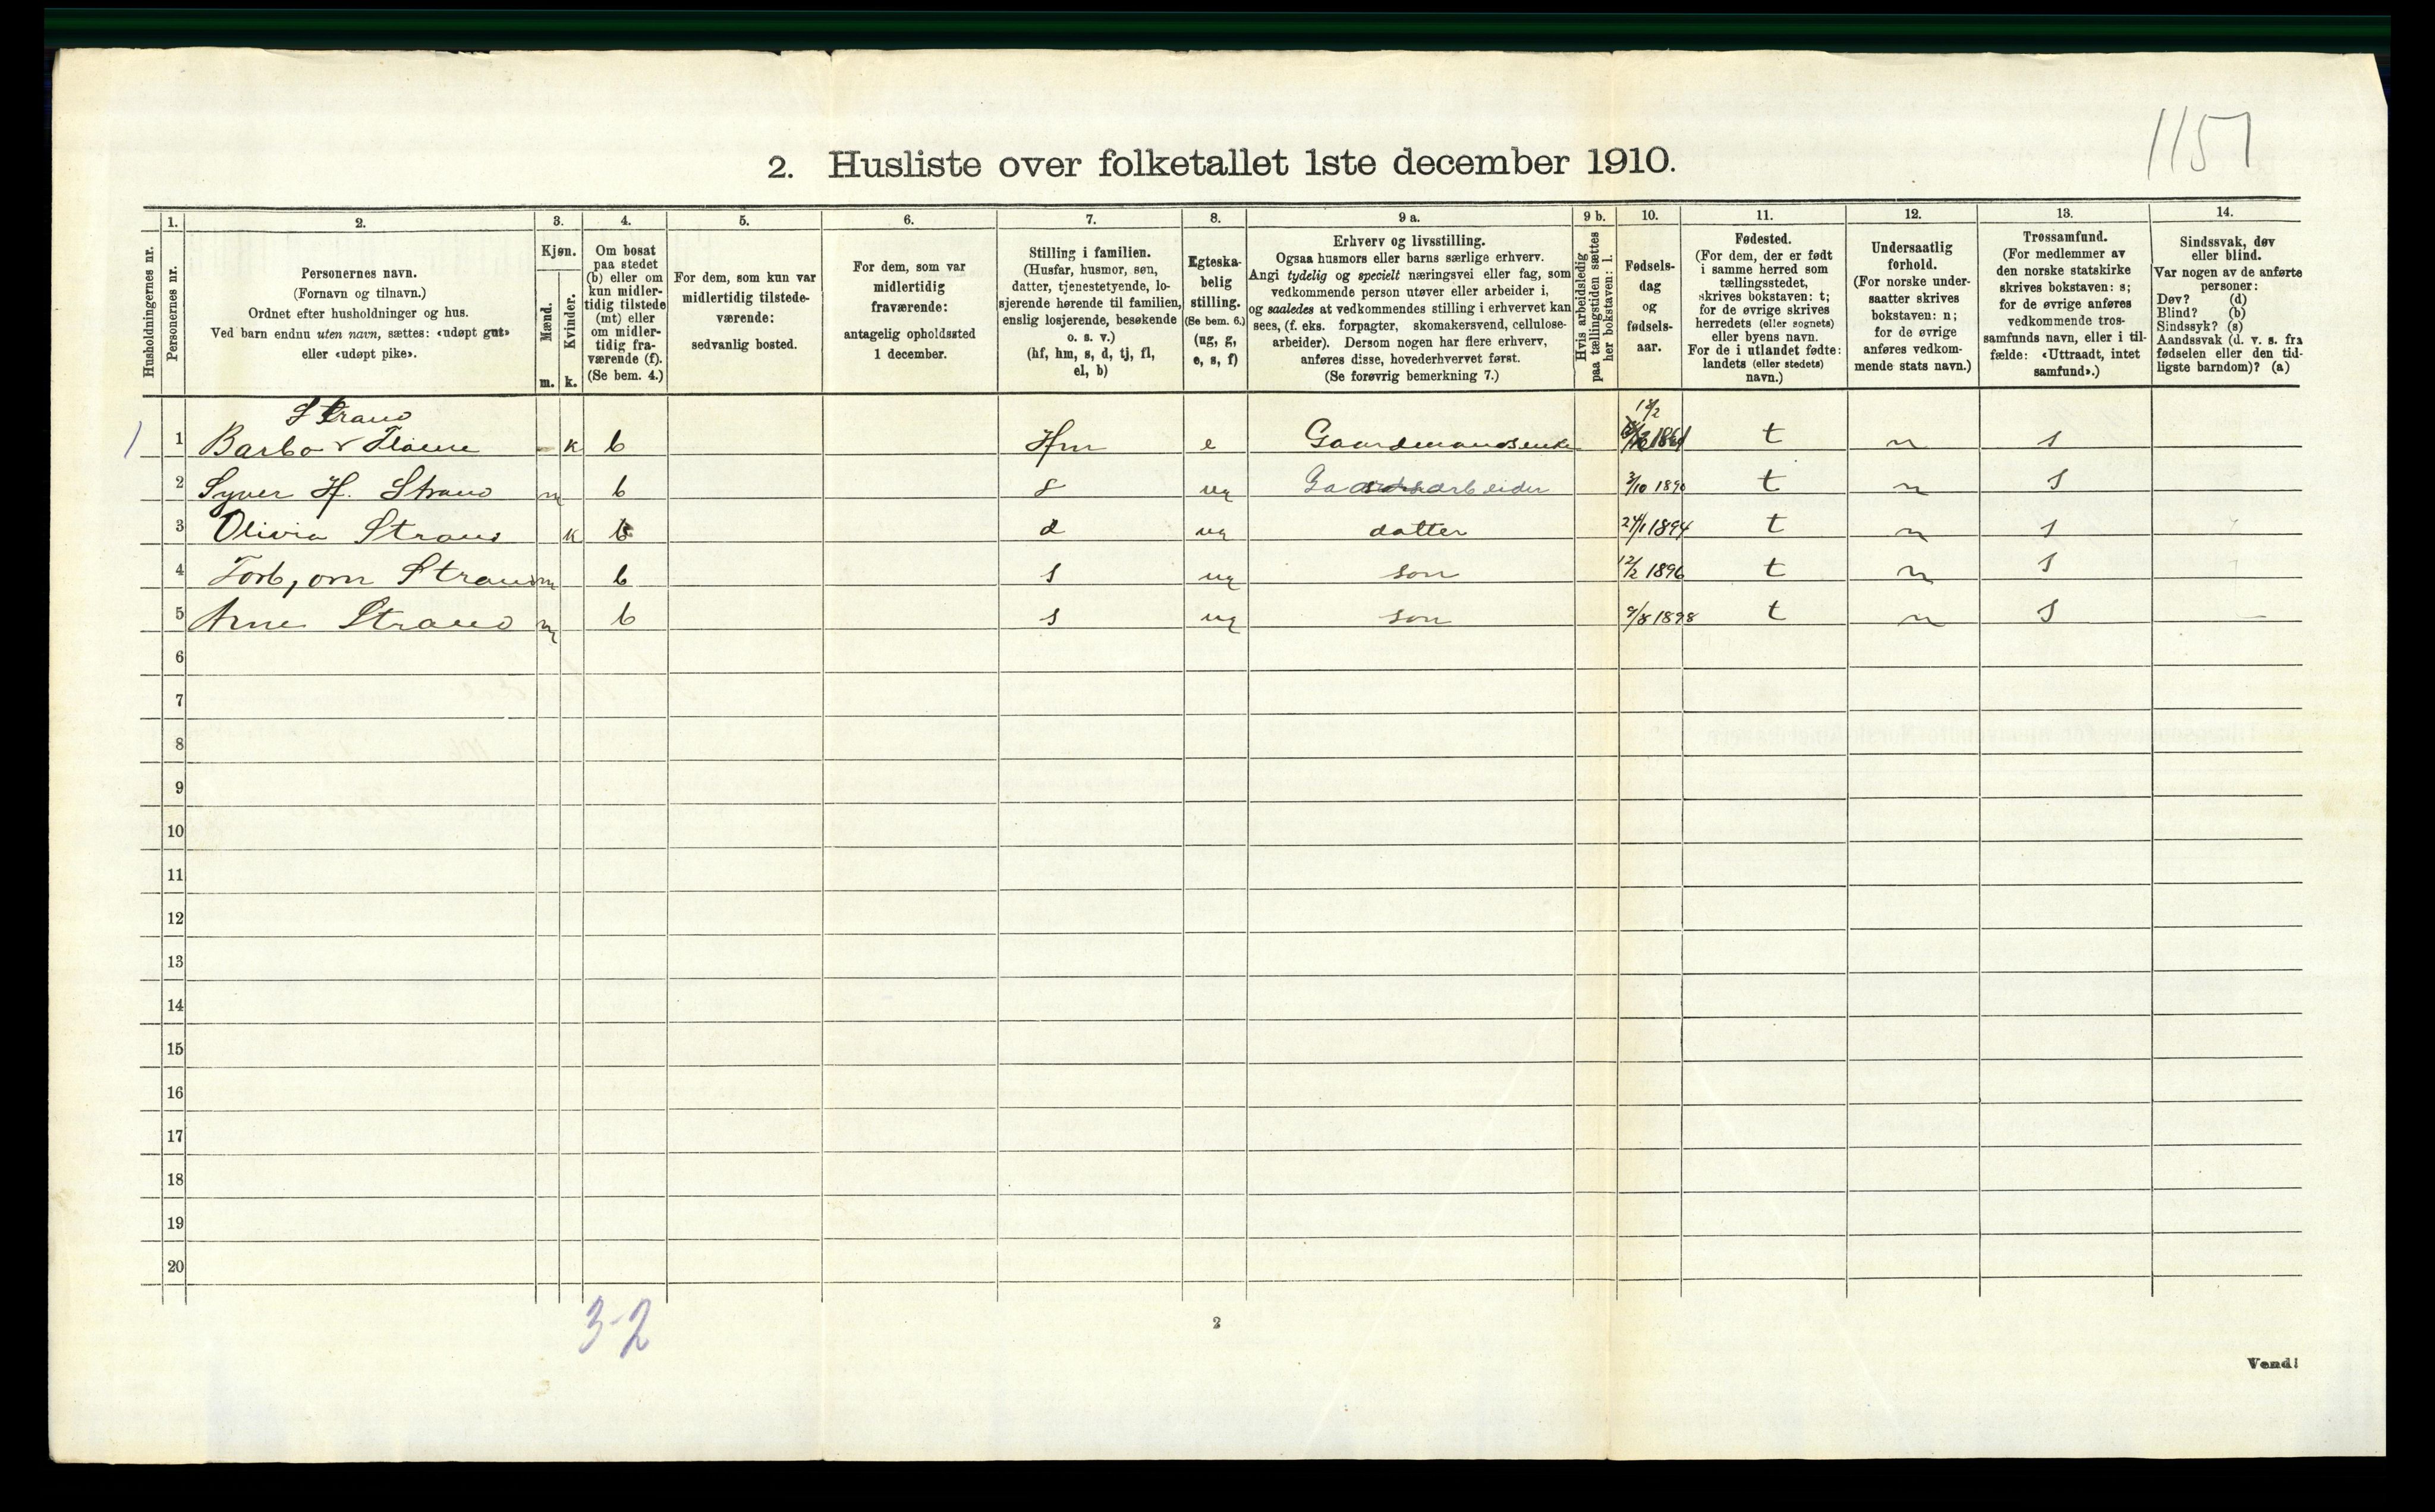 1151
2. Husliste over folketallet 1ste december 1910.
Husholdningernes nr.
1. Personernes nr.
2. Personernes navn. (Fornavn og tilnavn.) Ordnet efter husholdninger og hus. Ved barn endnu uten navn, sættes: «udøpt gut» eller «udøpt pike».
3. Kjøn. Mænd. m. Kvinder. k.
4. Om bosat paa stedet (b) eller om kun midlertidig tilstede (mt) eller om midlertidig fraværende (f). (Se bem. 4.)
5. For dem, som kun var midlertidig tilstedeværende: sedvanlig bosted.
6. For dem, som var midlertidig fraværende: antagelig opholdssted 1 december.
7. Stilling i familien. (Husfar, husmor, søn, datter, tjenestetyende, losjerende hørende til familien, enslig losjerende, besøkende o. s. v.) (hf, hm, s, d, tj, fl, el, b)
8. Egteskabelig stilling. (Se bem. 6.) (ug, g, e, s, f)
9 a. Erhverv og livsstilling. Ogsaa husmors eller barns særlige erhverv. Angi tydelig og specielt næringsvei eller fag, som vedkommende person utøver eller arbeider i, og saaledes at vedkommendes stilling i erhvervet kan sees, (f. eks. forpagter, skomakersvend, cellulosearbeider). Dersom nogen har flere erhverv, anføres disse, hovederhvervet først. (Se forøvrig bemerkning 7.)
9 b. Hvis arbeidsledig paa tællingstiden sættes her bokstaven: l.
10. Fødselsdag og fødselsaar.
11. Fødested. (For dem, der er født i samme herred som tællingsstedet, skrives bokstaven: t; for de øvrige skrives herredets (eller sognets) eller byens navn. For de i utlandet fødte: landets (eller stedets) navn.)
12. Undersaatlig forhold. (For norske undersaatter skrives bokstaven: n; for de øvrige anføres vedkommende stats navn.)
13. Trossamfund. (For medlemmer av den norske statskirke skrives bokstaven: s; for de øvrige anføres vedkommende trossamfunds navn, eller i tilfælde: «Uttraadt, intet samfund».)
14. Sindssvak, døv eller blind. Var nogen av de anførte personer: Døv? (d) Blind? (b) Sindssyk? (s) Aandssvak (d. v. s. fra fødselen eller den tidligste barndom)? (a)
Strand 18/2
1 1 Barbo k b Hm e Gaardmandsenke t n s
2 Syver H. Strand m b s ug Gaardsarbeider 3/10 1890 t n s
3 Olivia Strand k b d ug datter 24/1 1894 t n s
4 Torbjørn Strand m b s ug son 12/2 1896 t n s
5 Arne Strand m b s ug son 9/8 1898 t n s
6
7
8
9
10
11
12
13
14
15
16
17
18
19
20
3-2
2
Vend!